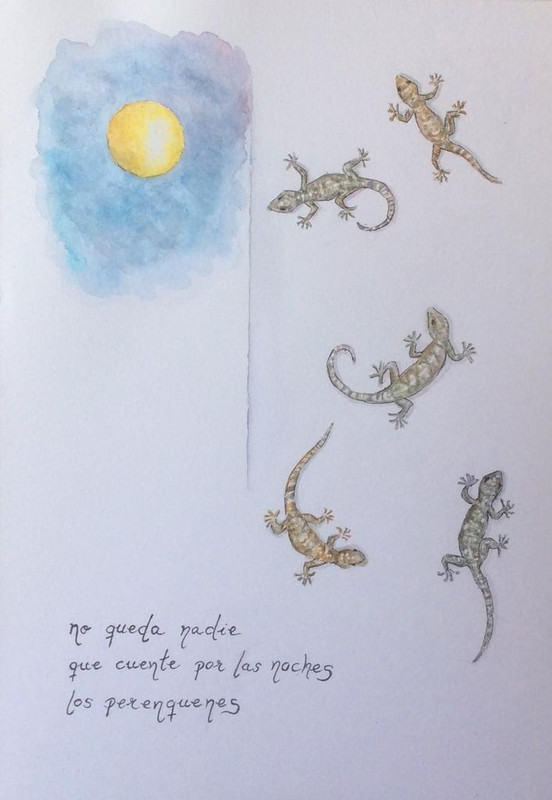 no queda nadie
que cuente por las noches
los perenquenes